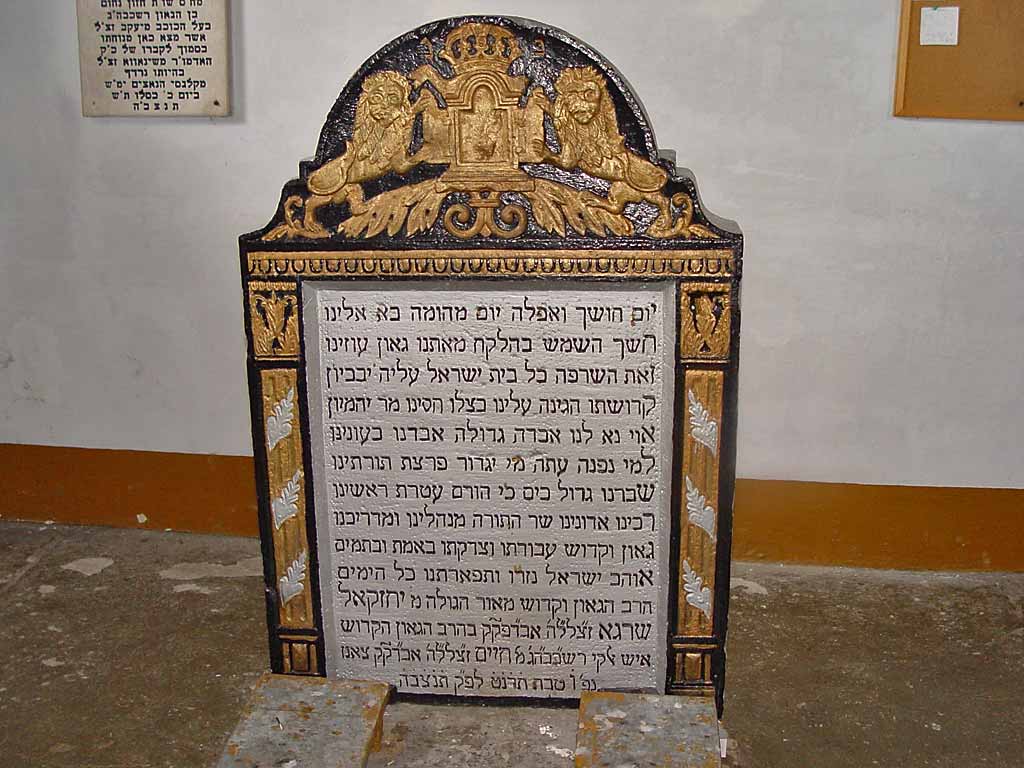 בן הגאון רשכבה״ג
בעל הכוכב מיעקב זצ״ל
אשר מצא כאן מנוחתו
בסמוך לקברו של כ״ק
האדמו״ר משינאווא זצ״ל
בהיותו נרדף
מקלגסי הנאצים ימ״ש
ביום כ׳ כסלו ת״ש
ת נ צ ב ״ה
פ נ
יום חושך ואפלה יום מהומה בא אלינו
חשך השמש בהלקח מאתנו גאון עוזינו
זאת השרפה כל בית ישראל עליה יבכיון
קדושתו הגינה עלינו בצלו חסינו מר יהמיון
אוי נא לנו אבדה גדולה אבדנו בעונינו
למי נפנה עתה מי יגדור פרצת תורתינו
שברנו גדול כים כי הורם עטרת ראשינו
רבינו אדונינו שר התורה מנהלינו ומדריכנו
גאון וקדוש עבודתו וצדקתו באמת ובתמים
אוהב ישראל נזרו ותפארתנו כל הימים
הרב הגאון וקדוש מאור הגולה מ יחזקאל
שרגא זצללה״ה אבדפק״ק בהרב הגאון הקדוש
איש אלקי רשכבה״ג מ חיים זצללה״ה אבדק״ק צאנז
נפ׳ ו׳ טבת תרנט לפ״ק תנצבה